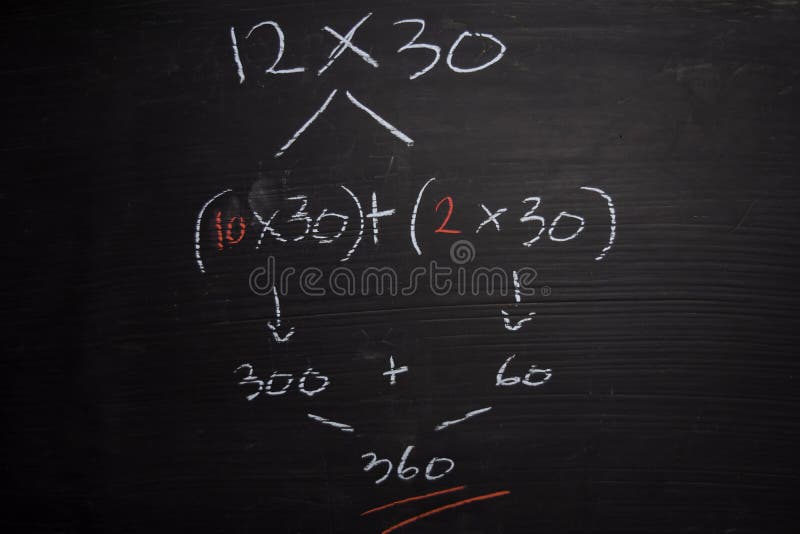 12 × 30
(10 × 30) + (2 × 30)
dreamstime
300 + 60
360